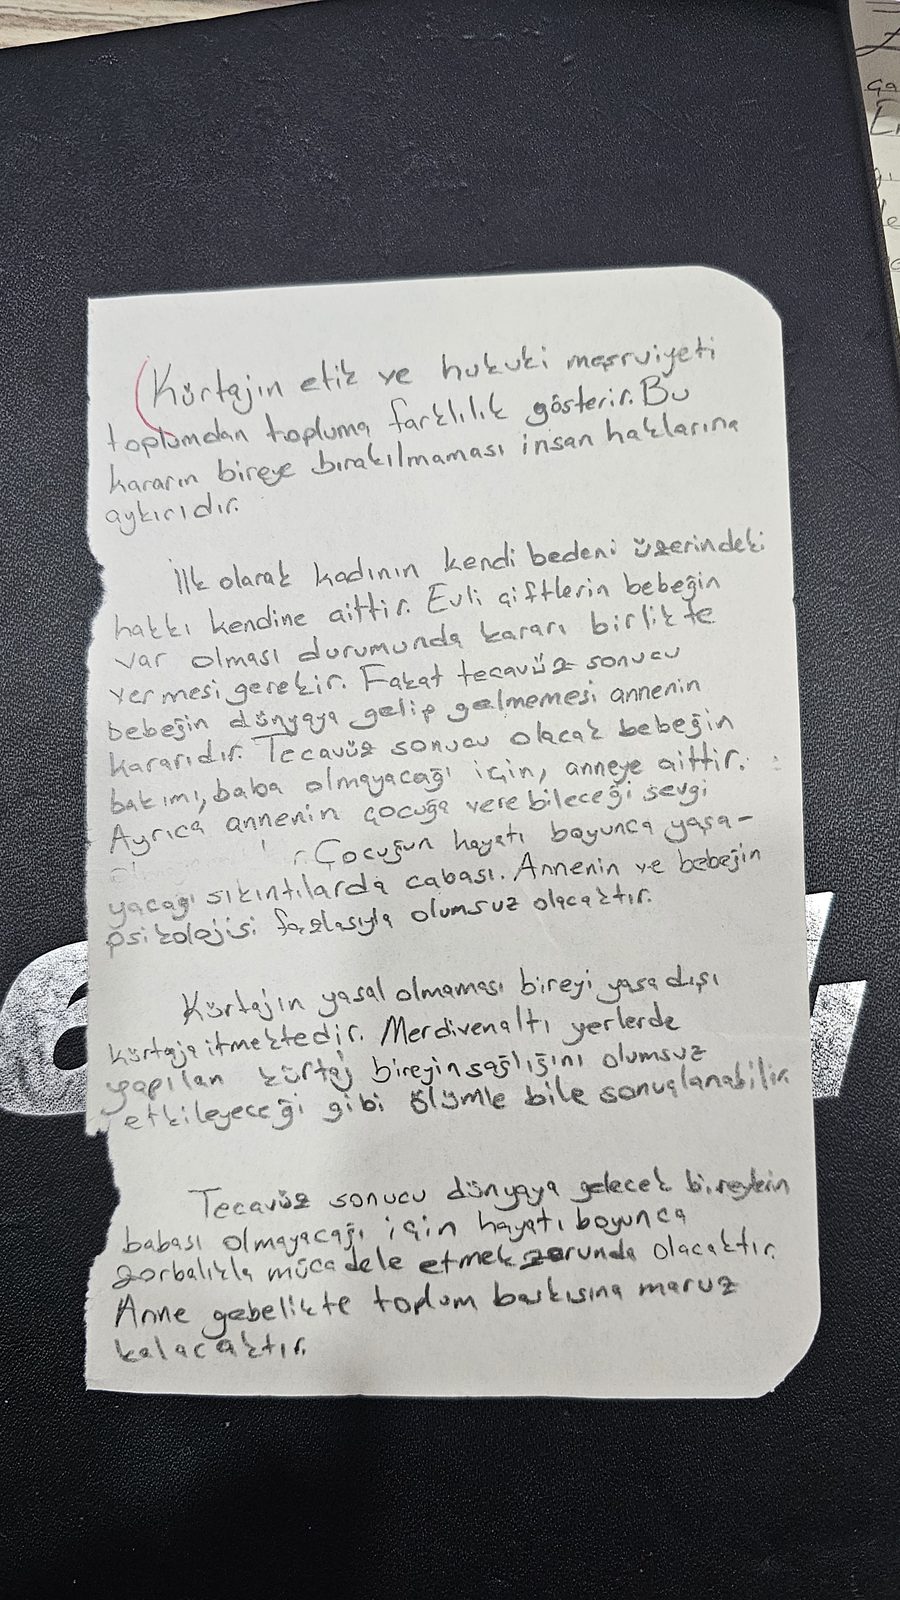 Kürtajın etik ve hukuki meşruiyeti
toplumdan topluma farklılık gösterir. Bu
kararın bireye bırakılmaması insan haklarına
aykırıdır.
İlk olarak kadının kendi bedeni üzerindeki
hakkı kendine aittir. Evli çiftlerin bebeğin
var olması durumunda kararı birlikte
vermesi gerekir. Fakat tecavüz sonucu
bebeğin dünyaya gelip gelmemesi annenin
kararıdır. Tecavüz sonucu olacak bebeğin
bakımı, baba olmayacağı için, anneye aittir.
Ayrıca annenin çocuğa verebileceği sevgi
Çocuğun hayatı boyunca yaşa-
yacağı sıkıntılarda cabası. Annenin ve bebeğin
psikolojisi fazlasıyla olumsuz olacaktır.
Kürtajın yasal olmaması bireyi yasadışı
kürtaja itmektedir. Merdivenaltı yerlerde
yapılan kürtaj bireyin sağlığını olumsuz
etkileyeceği gibi ölümle bile sonuçlanabilir.
Tecavüz sonucu dünyaya gelecek bireylerin
babası olmayacağı için hayatı boyunca
zorbalıkla mücadele etmek zorunda olacaktır.
Anne gebelikte toplum baskısına maruz
kalacaktır.